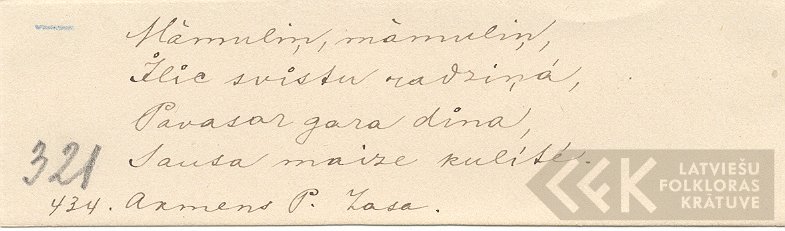 Māmuliņ, māmuliņ,
Īlic svistu radziņá,
Pavasar gara dina,
Sausa maize kulítê.
321
434. Akmens P. Zasa.
LATVIEŠU
FOLKLORAS
KRĀTUVE